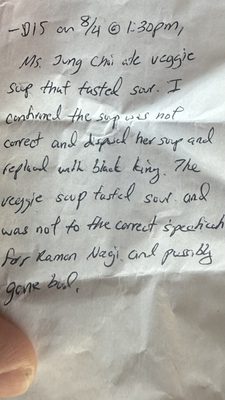 - D15 on 8/4 @ 1:30pm,
Ms. Jung Chui ate veggie
soup that tasted sour. I
confirmed the soup was not
correct and disposed her soup and
replaced with black king. The
veggie soup tasted sour and
was not to the correct specificati
for Ramen Nagi and possibly
gone bad.